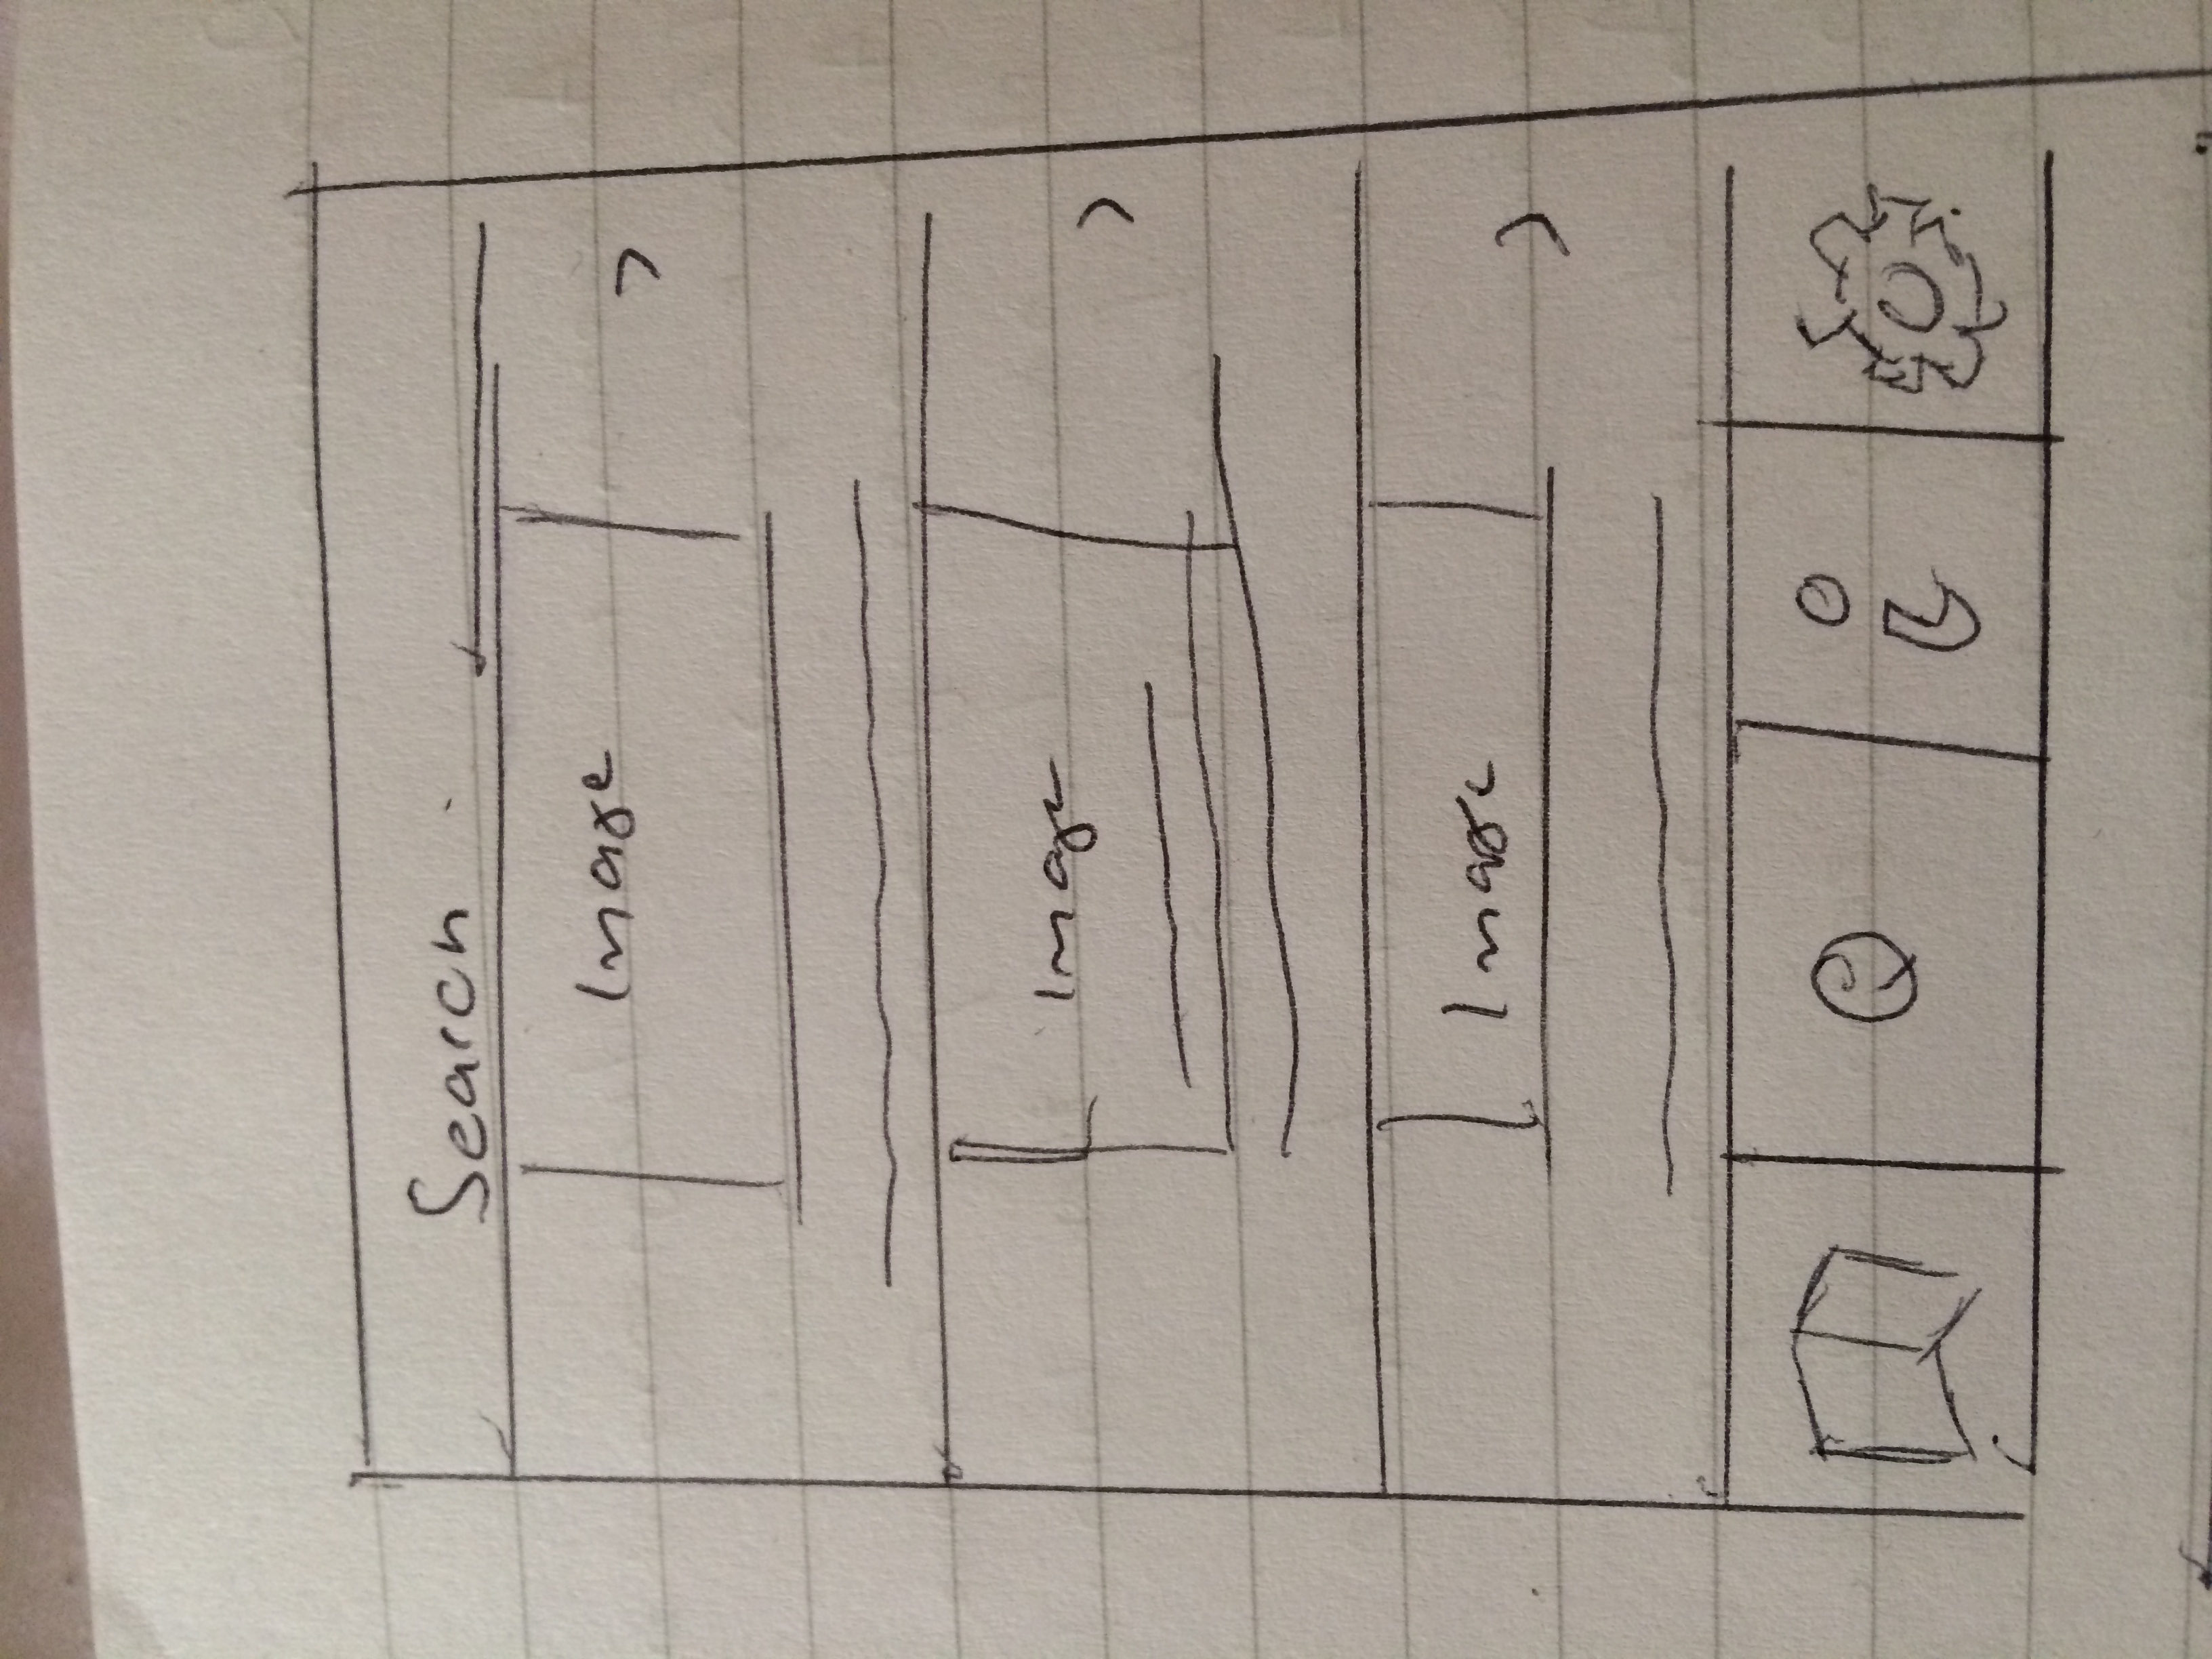 Search
Image
>
Image
>
Image
>